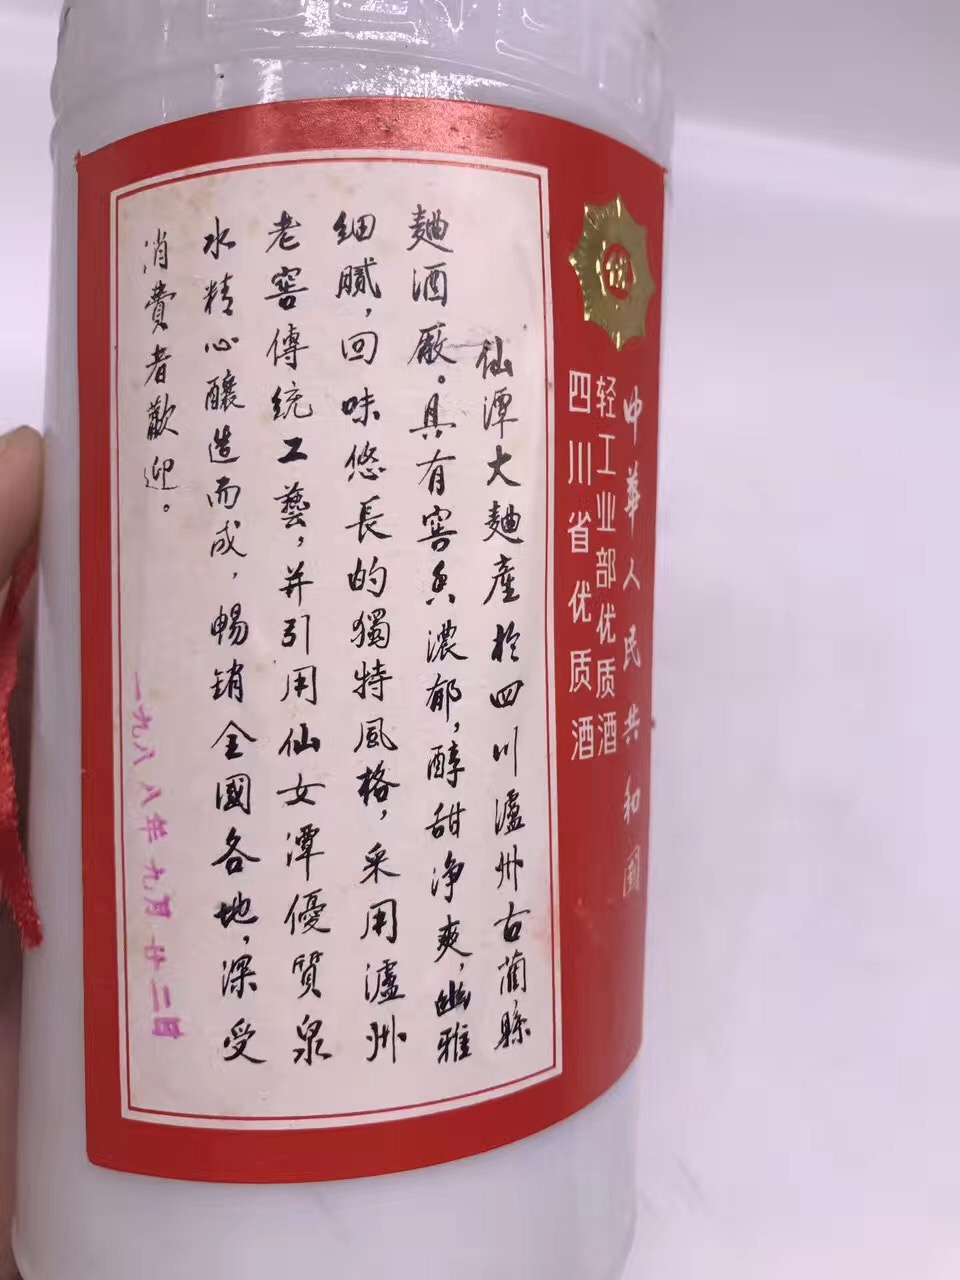 中華人民共和國
轻工业部优质酒
四川省优质酒
优
仙潭大麯產於四川瀘州古藺縣
麯酒廠。具有窖香濃郁，醇甜淨爽，幽雅
細膩，回味悠長的獨特風格，采用瀘州
老窖傳統工藝，并引用仙女潭優質泉
水精心釀造而成，暢銷全國各地，深受
消費者歡迎。
一九八八年九月廿二日